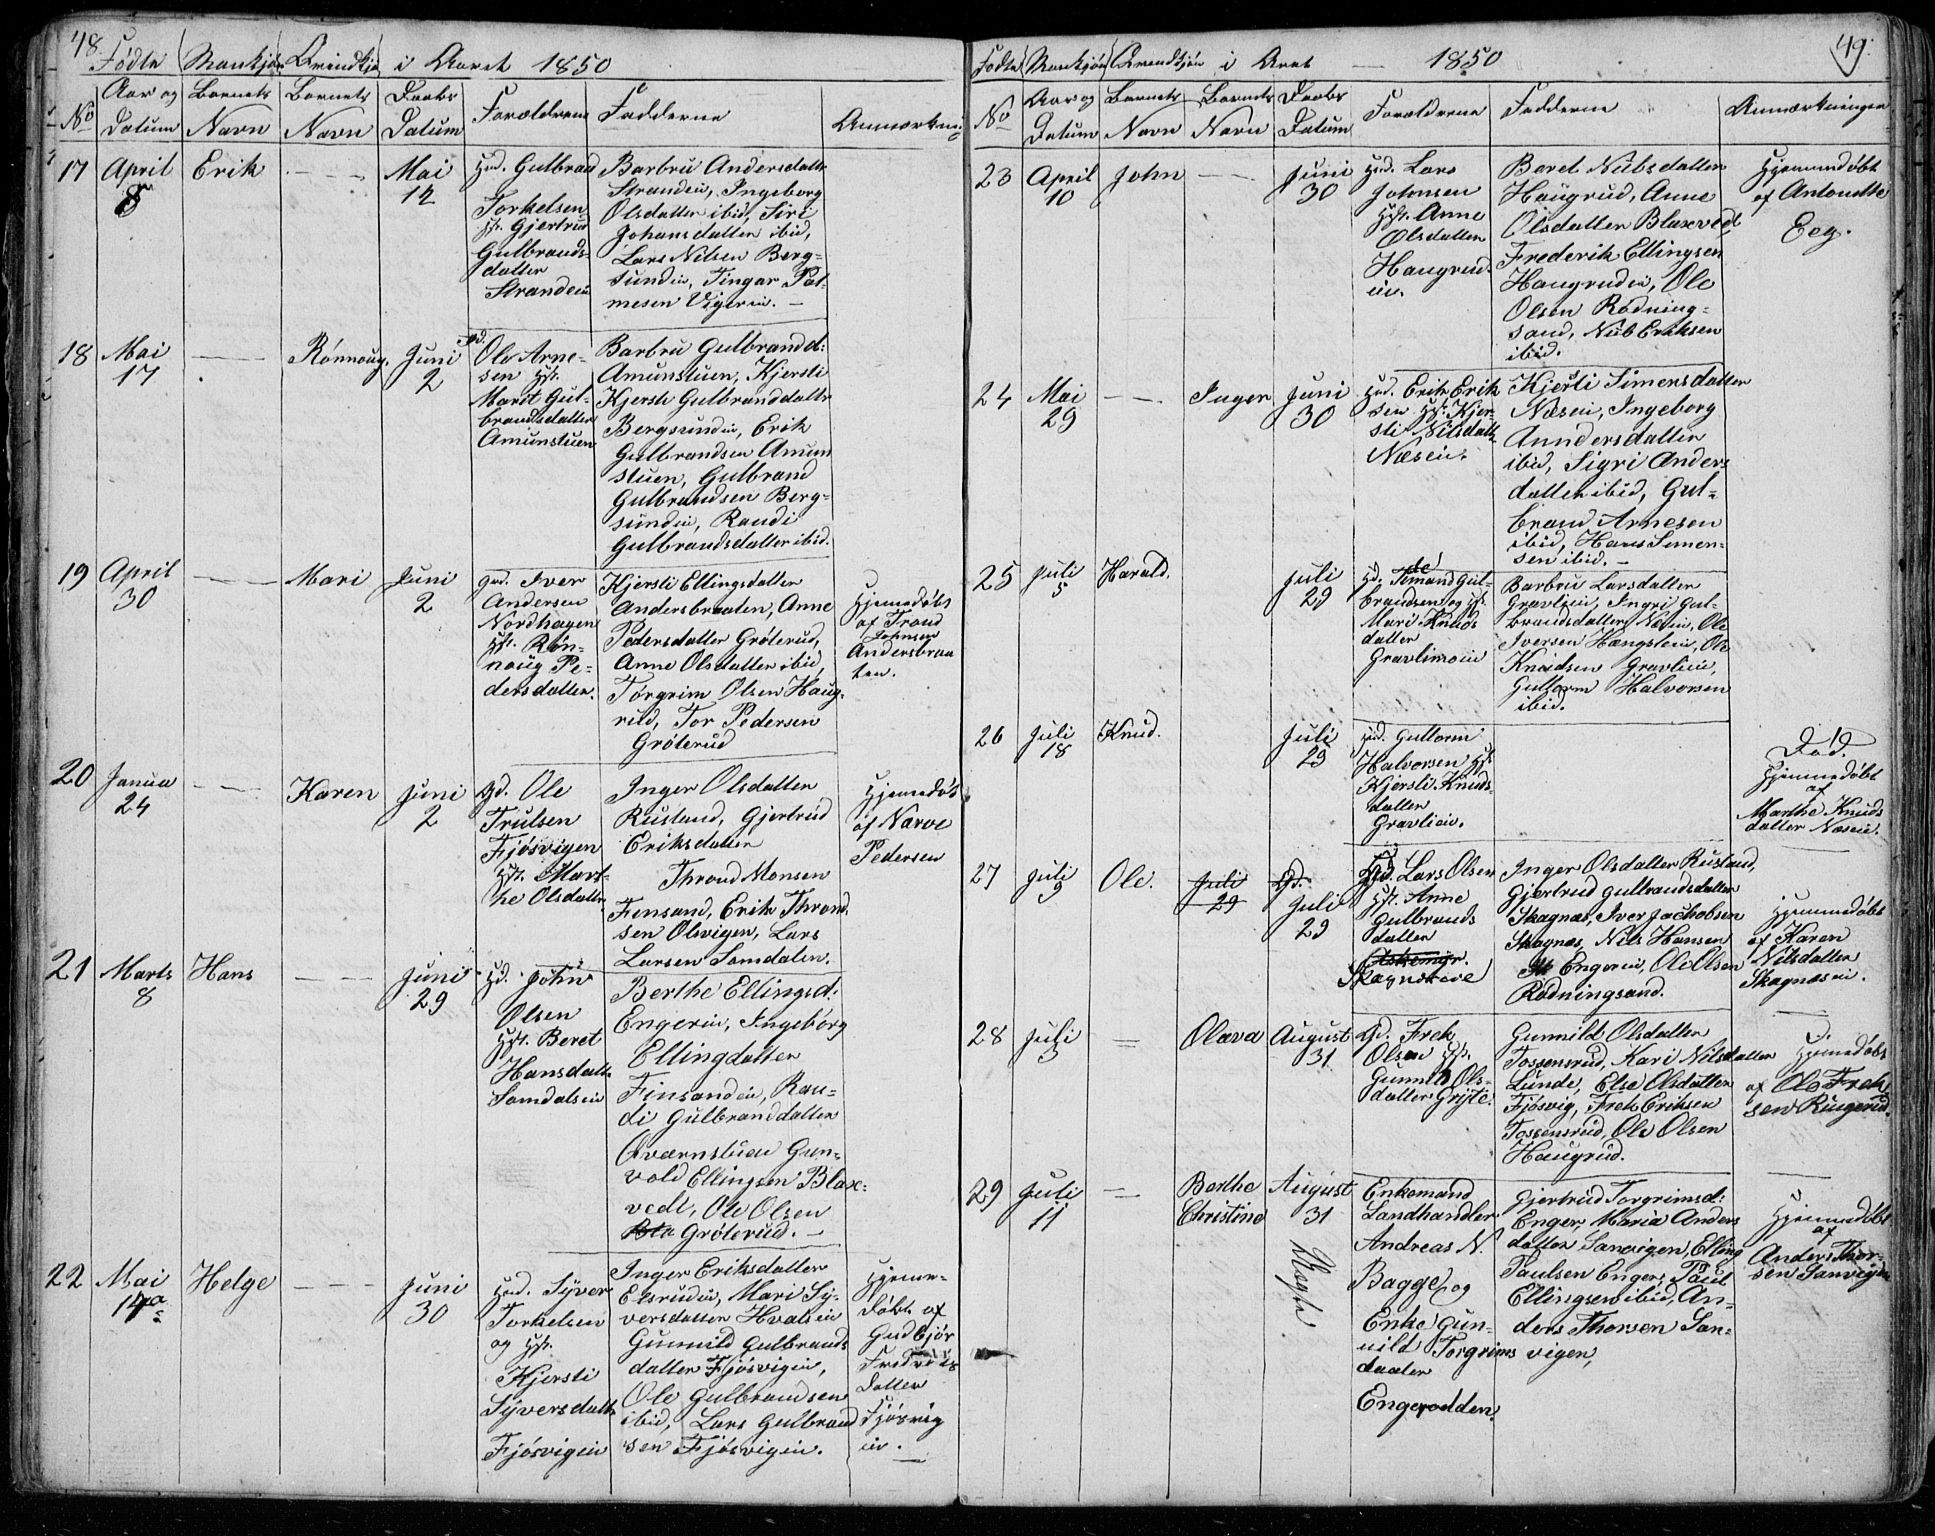 48.
Fødte Mankjøn Qvindkjø i Aaret 1850
No
Aar og Datum
Barnets Navn
Barnets Navn
Daabs Datum
Forældrene
Fadderne
Anmærkni
17
April
8
Erik
Mai
12
Hd. Gulbrand
Torkelsen
Hst. Gjertrud
Gulbrands-
datter
Strandeie
Barbru Andersdatter
Strandeie, Ingeborg
Olsdatter ibid, Siri
Johansdatter ibid,
Lars Nilsen Berg-
sundeie, Tingar Pal-
mesen Vigerie. –
18
Mai
17
Rønnoug.
Juni
2
Gd.
Ole Arne-
sen Hst.
Marit Gul-
brandsdatter
Amunstuen
Barbru Gulbrandd:
Amunstuen, Kjersti
Kjersti Gulbranddatter
Bergsundeie, Erik
Gulbrandsen Amun
stuen, Gulbrand
Gulbrandsen Berg-
sundeie, Randi
Gulbrandsdatter ibid.
19
April
30
Mari
Juni
2
Gd. Iver
Andersen
Nordhagen
Hst. Røn-
noug Pe-
dersdatter.
Kjersti Ellingsdatter
Andersbraaten, Anne
Pedersdatter Grøterud,
Anne Olsdatter ibid,
Torgrim Olsen Haug-
rud, Tor Pedersen
Grøterud
Hjemedøbt
af Trond
Johnsen
Andersbraa
ten.
20
Janua
24
Karen
Juni
2
Gd. Ole
Trulsen
Fjøsvigen
Hst. Mart-
he Olsdatter
Inger Olsdatter
Rustand, Gjertrud
Eriksdatter
Thrond Monsen
Fensand, Erik Thrond
sen Olsvigen, Lars
Larsen Samdalen.
Hjemedøbt
af Narve
Pedersen
21
Marts
8
Hans
Juni
29
Hd. John
Olsen
Hst. Beret
Hansdatter
Samdalseie
Berthe Ellingsd:
Engereie, Ingeborg
Ellingdatter
Finsandeie, Ran-
di Gulbranddatter
Qværnstuen Gun-
vold Ellingsen Blaxe-
vedt, Ole Olsen
Bla Grøterud. –
22
Mai
14
Helge
Juni
30
Hd. Syver
Torkelsen
og Hst.
Kjersti
Syversdatter
Fjøsvigeie
Inger Eriksdatter
Elsrudeie, Mari Sy-
versdatter Hvalseie
Gunnild Gulbrands
datter Fjøsvigeie,
Ole Gulbrandsen
ibid, Lars Gulbrand
sen Fjøsvigeie.
Hjeme-
døbt af
Gudbjør
Fredriks
datter
Fjøsvig
eie.
49.
Fødte Mankjøn Qvindkjøn i Aret – 1850
No
Aar og Datum
Barnets Navn
Barnets Navn
Daabs Datum
Forældrene
Fadderne
Anmærkninger
23
April
10
John
Juni
30
Hd. Lars
Johnsen
Hst. Anne
Olsdatter
Haugrud-
eie.
Beret Nilsdatter
Haugrud, Anne
Olsdatter Blaxevedt
Frederik Ellingsen
Haugrudeie, Ole
Olsen Rødning-
sand, Nils Eriksen
ibid.
Hjemmedøbt
af Antonette
Eeg.
24
Mai
29
Inger
Juni
30
Hd. Erik Erik
sen Hst. Kjer-
sti Nilsdatter
Næseie.
Kjersti Simensdatter
Næseie, Ingeborg
Anndersdatter
ibid, Sigri Anders
datter ibid, Gul-
brand Arnesen
ibid, Hans Simen-
sen ibid. –
25
Juli
5
Harald.
Juli
29
Hd. Gul-
brandsen og Hst.
Mari Knuds
datter
Gravlimoeie
Barbru Larsdatter
Gravlieie, Ingri Gul-
brandsdatter Næseie, Ole
Iversen Hængsleeie, Ole
Knudsen Gravlieie,
Guttorm Halvorsen
ibid.
26
Juli
18
Knud.
Juli
29
Hd. Guttorm
Halvorsen Hst.
Kjersti Knuds-
datter
Gravlieie.
Død.
Hjemmedøbt
af
Marthe Knuds
datter Næseie.
27
Juli
9
Ole.
Juli
29
Gd.
Juli
29
Gd. Lars Olsen
Hst. Anne
Gulbrands
datter
Skagnæseie
Inger Olsdatter Rustand,
Gjertrud Gulbrandsdatter
Skagnæs, Iver Jachobsen
Skagnæs, Nils Hansen
Engereie, Ole Olsen
Rødningsand.
Hjemmedøbt
af Karen
Nilsdatter
Skagnæseie.
28
Juli
3
Olava
August
31
Gd. Frek
Olsen Hst.
Gunnild Ols-
datter Grÿte.
Gunnild Olsdatter
Tossensrud, Kari Nilsdatter
Lunde, Else Olsdatter
Fjøsvig, Frek Eriksen
Tossensrud, Ole Olsen
Haugrud.
Hjemedøbt
af Ole Frek
sen Ringerud.
29
Juli
11
Berthe
Christine
August
31
Enkemand
Landhandler
Andreas N.
Bagge og
Enke Gun-
nild Torgrims
daater
Engerodden.
Gjertrud Torgrimsd:
Enger, Maria Anders
datter Sanvigen, Elling
Paulsen Enger, Paul
Ellingsen ibid, An-
ders Thorsen San-
vigen,
Hjemmedøbt
af
Anders Thor-
sen Sanvigen